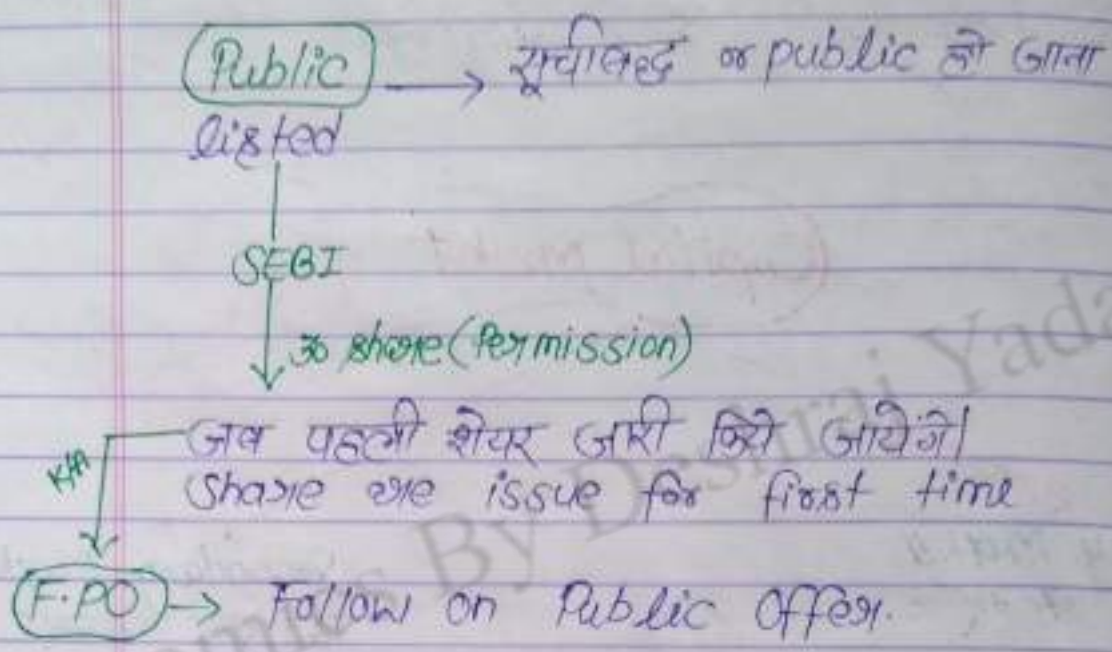 Public → सूचीबद्ध or public हो जाना
listed
SEBI
30 share (Permission)
जब पहली शेयर जारी किये जायेंगे।
Share are issue for first time
KIA
F.PO → Follow on Public Offer.
By Deshraj Yada